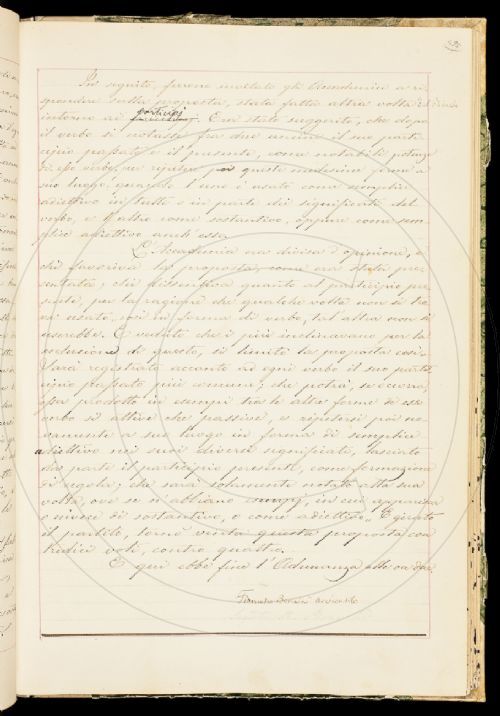 In seguito, furono invitati gli Accademici a ri-
spondere sulla proposta, stata fatta altra volta
intorno ai participj. Era stato suggerito, che dopo
il verbo si notasse fra due accenti il suo parti-
cipio passato e il presente, come notabili potenze
di esso verbo, per questi medesimi forma a
suo luogo, quando l'uno è usato come semplice
adiettivo in tutti o in parte dei significati del
verbo, e l'altro come sostantivo, oppure come sem-
plice adiettivo anch'esso.
L'Accademia era divisa d'opinione, e
chi favoriva la proposta, come era stata pre-
sentata; chi dissentiva quanto al participio pre-
sente, per la ragione che qualche volta non si tro-
va usato, nè in forma di verbo, tal altra non si
userebbe. E veduto che i più inclinavano per la
esclusione di questo, si limitò la proposta così.
Sarà registrato accanto ad ogni verbo il suo parti-
cipio passato più comune; che potrà, se occorra,
esser prodotto in esempi tra le altre forme di esso
verbo sì attive che passive, e ripetersi poi no-
vamente a suo luogo in forma di semplice
adiettivo nei suoi diversi significati, lasciato
da parte il participio presente, come formazione
di regola; che sarà solamente notato alla sua
volta, ove se n'abbiano esempj, in cui apparisca
o invece di sostantivo, o come adiettivo. E girato
il partito, tornò vinta questa proposta con
tredici voti, contro quattro.
E qui ebbe fine l'Adunanza alle ore due.